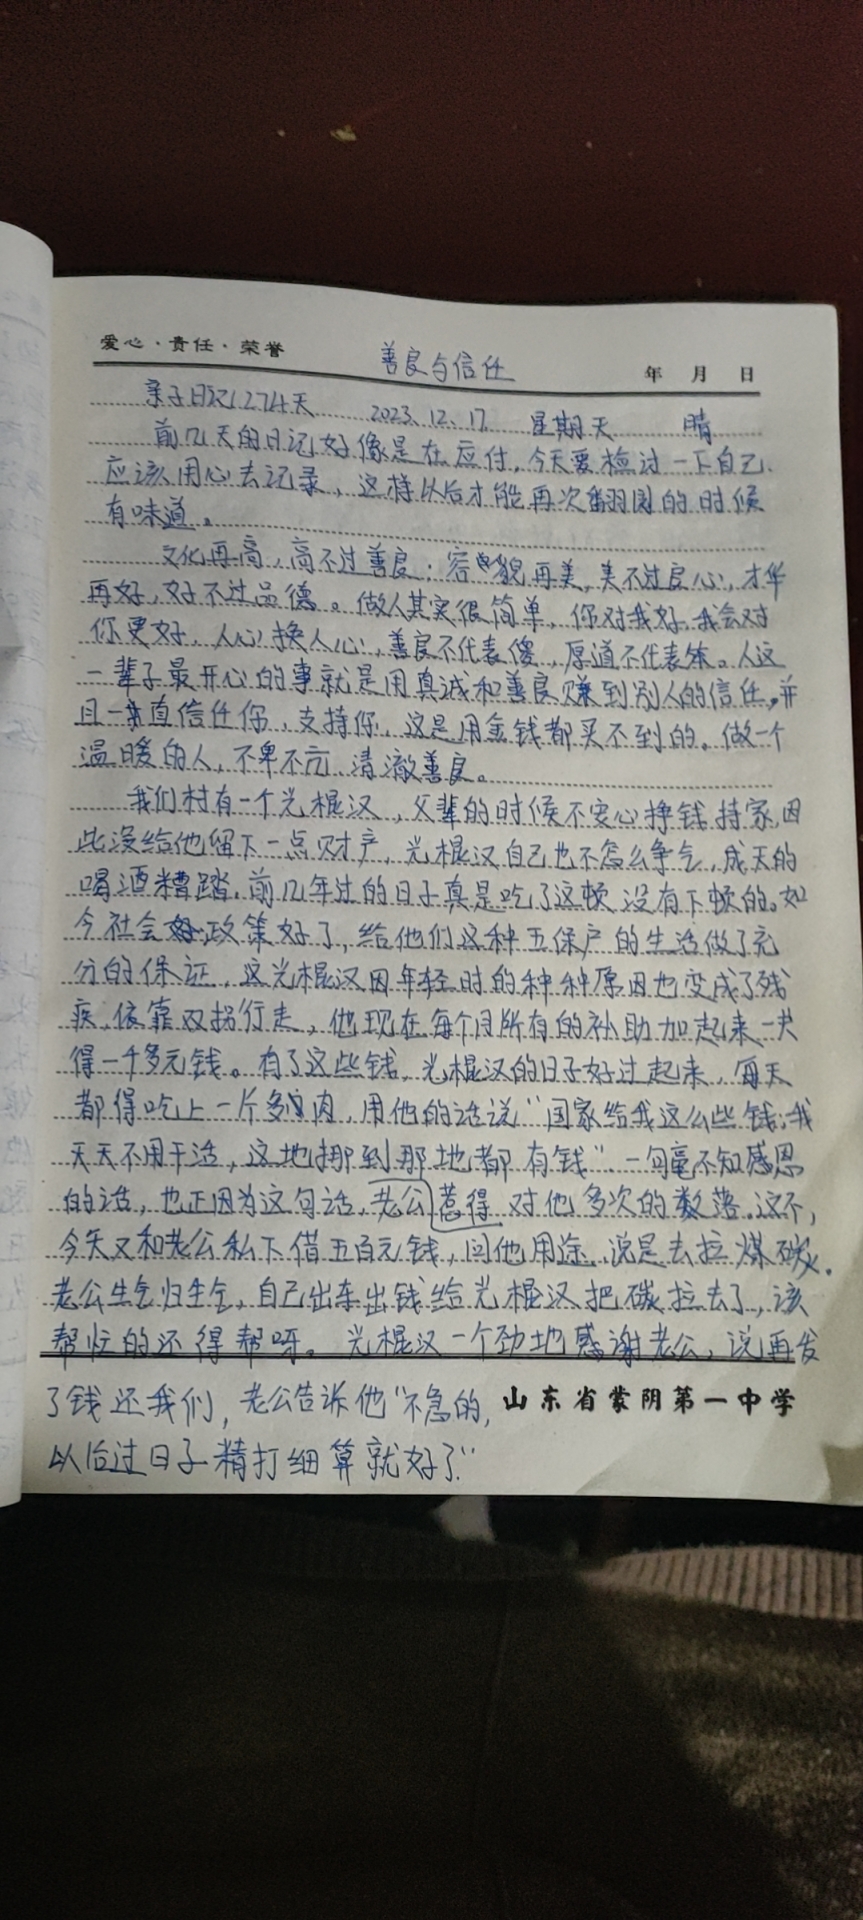 爱心·责任·荣誉 善良与信任 年 月 日
亲子日记1274天 2023.12.17 星期天 晴
前几天的日记好像是在应付,今天要检讨一下自己.
应该用心去记录,这样以后才能再次翻阅的时候
有味道。
文化再高,高不过善良;容貌再美,美不过良心,才华
再好,好不过品德。做人其实很简单,你对我好,我会对
你更好,人心换人心,善良不代表傻,厚道不代表笨。人这
一辈子最开心的事就是用真诚和善良赚到别人的信任,并
且一直信任你,支持你,这是用金钱都买不到的。做一个
温暖的人,不卑不亢 清澈善良。
我们村有一个光棍汉,父辈的时候不安心挣钱持家,因
此没给他留下一点财产,光棍汉自己也不怎么争气,成天的
喝酒糟踏,前几年过的日子真是吃了这顿 没有下顿的。如
今社会政策好了,给他们这种五保户的生活做了充
分的保证,这光棍汉因年轻时的种种原因也变成了残
疾,依靠双拐行走,他现在每个月所有的补助加起来一共
得一千多元钱。有了这些钱,光棍汉的日子好过起来,每天
都得吃上一斤多肉,用他的话说“国家给我这么些钱,我
天天不用干活,这地挪到那地都有钱”.一句毫不知感恩
的话,也正因为这句话,老公惹得对他多次的数落.这不,
今天又和老公私下借五百元钱,问他用途,说是去拉煤碳.
老公生气归生气,自己出车出钱给光棍汉把碳拉去了,该
帮忙的还得帮呀。光棍汉一个劲地感谢老公,说再发
了钱还我们,老公告诉他“不急的, 山东省蒙阴第一中学
以后过日子精打细算就好了”